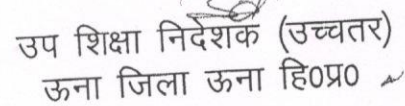 उप शिक्षा निदेशक (उच्चतर)
ऊना जिला ऊना हि०प्र०